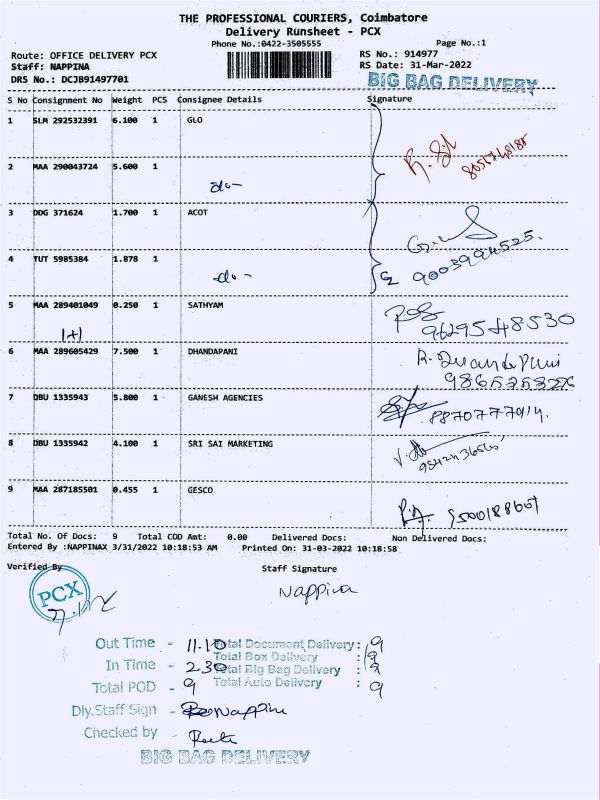 THE PROFESSIONAL COURIERS, Coimbatore
Delivery Runsheet - PCX
Phone No.:0422-3505555
Page No.:1
Route: OFFICE DELIVERY PCX
RS No.: 914977
Staff: NAPPINA
RS Date: 31-Mar-2022
DRS No.: DCJB91497701
BIG BAG DELIVERY
S No Consignment No Weight PCS Consignee Details Signature
1 SLM 292532391 6.100 1 GLO
2 MAA 290043724 5.600 1
-do-
3 DDG 371624 1.700 1 ACOT
4 TUT 5985384 1.878 1
-do-
9003994525
5 MAA 289401049 0.250 1 SATHYAM
9629548530
6 MAA 289605429 7.500 1 DHANDAPANI
7 DBU 1335943 5.800 1 GANESH AGENCIES
8 DBU 1335942 4.100 1 SRI SAI MARKETING
9 MAA 287185501 0.455 1 GESCO
Total No. Of Docs: 9 Total COD Amt: 0.00 Delivered Docs: Non Delivered Docs:
Entered By :NAPPINAX 3/31/2022 10:18:53 AM Printed On: 31-03-2022 10:18:58
Verified By
Staff Signature
PCX
Nappina
Out Time - 11.10
Total Document Delivery : 9
Total Box Delivery : 9
In Time - 2.30
Total Big Bag Delivery : 9
Total POD - 9
Total Auto Delivery : 9
Dly.Staff Sign - Nappina
Checked by -
BIG BAG DELIVERY